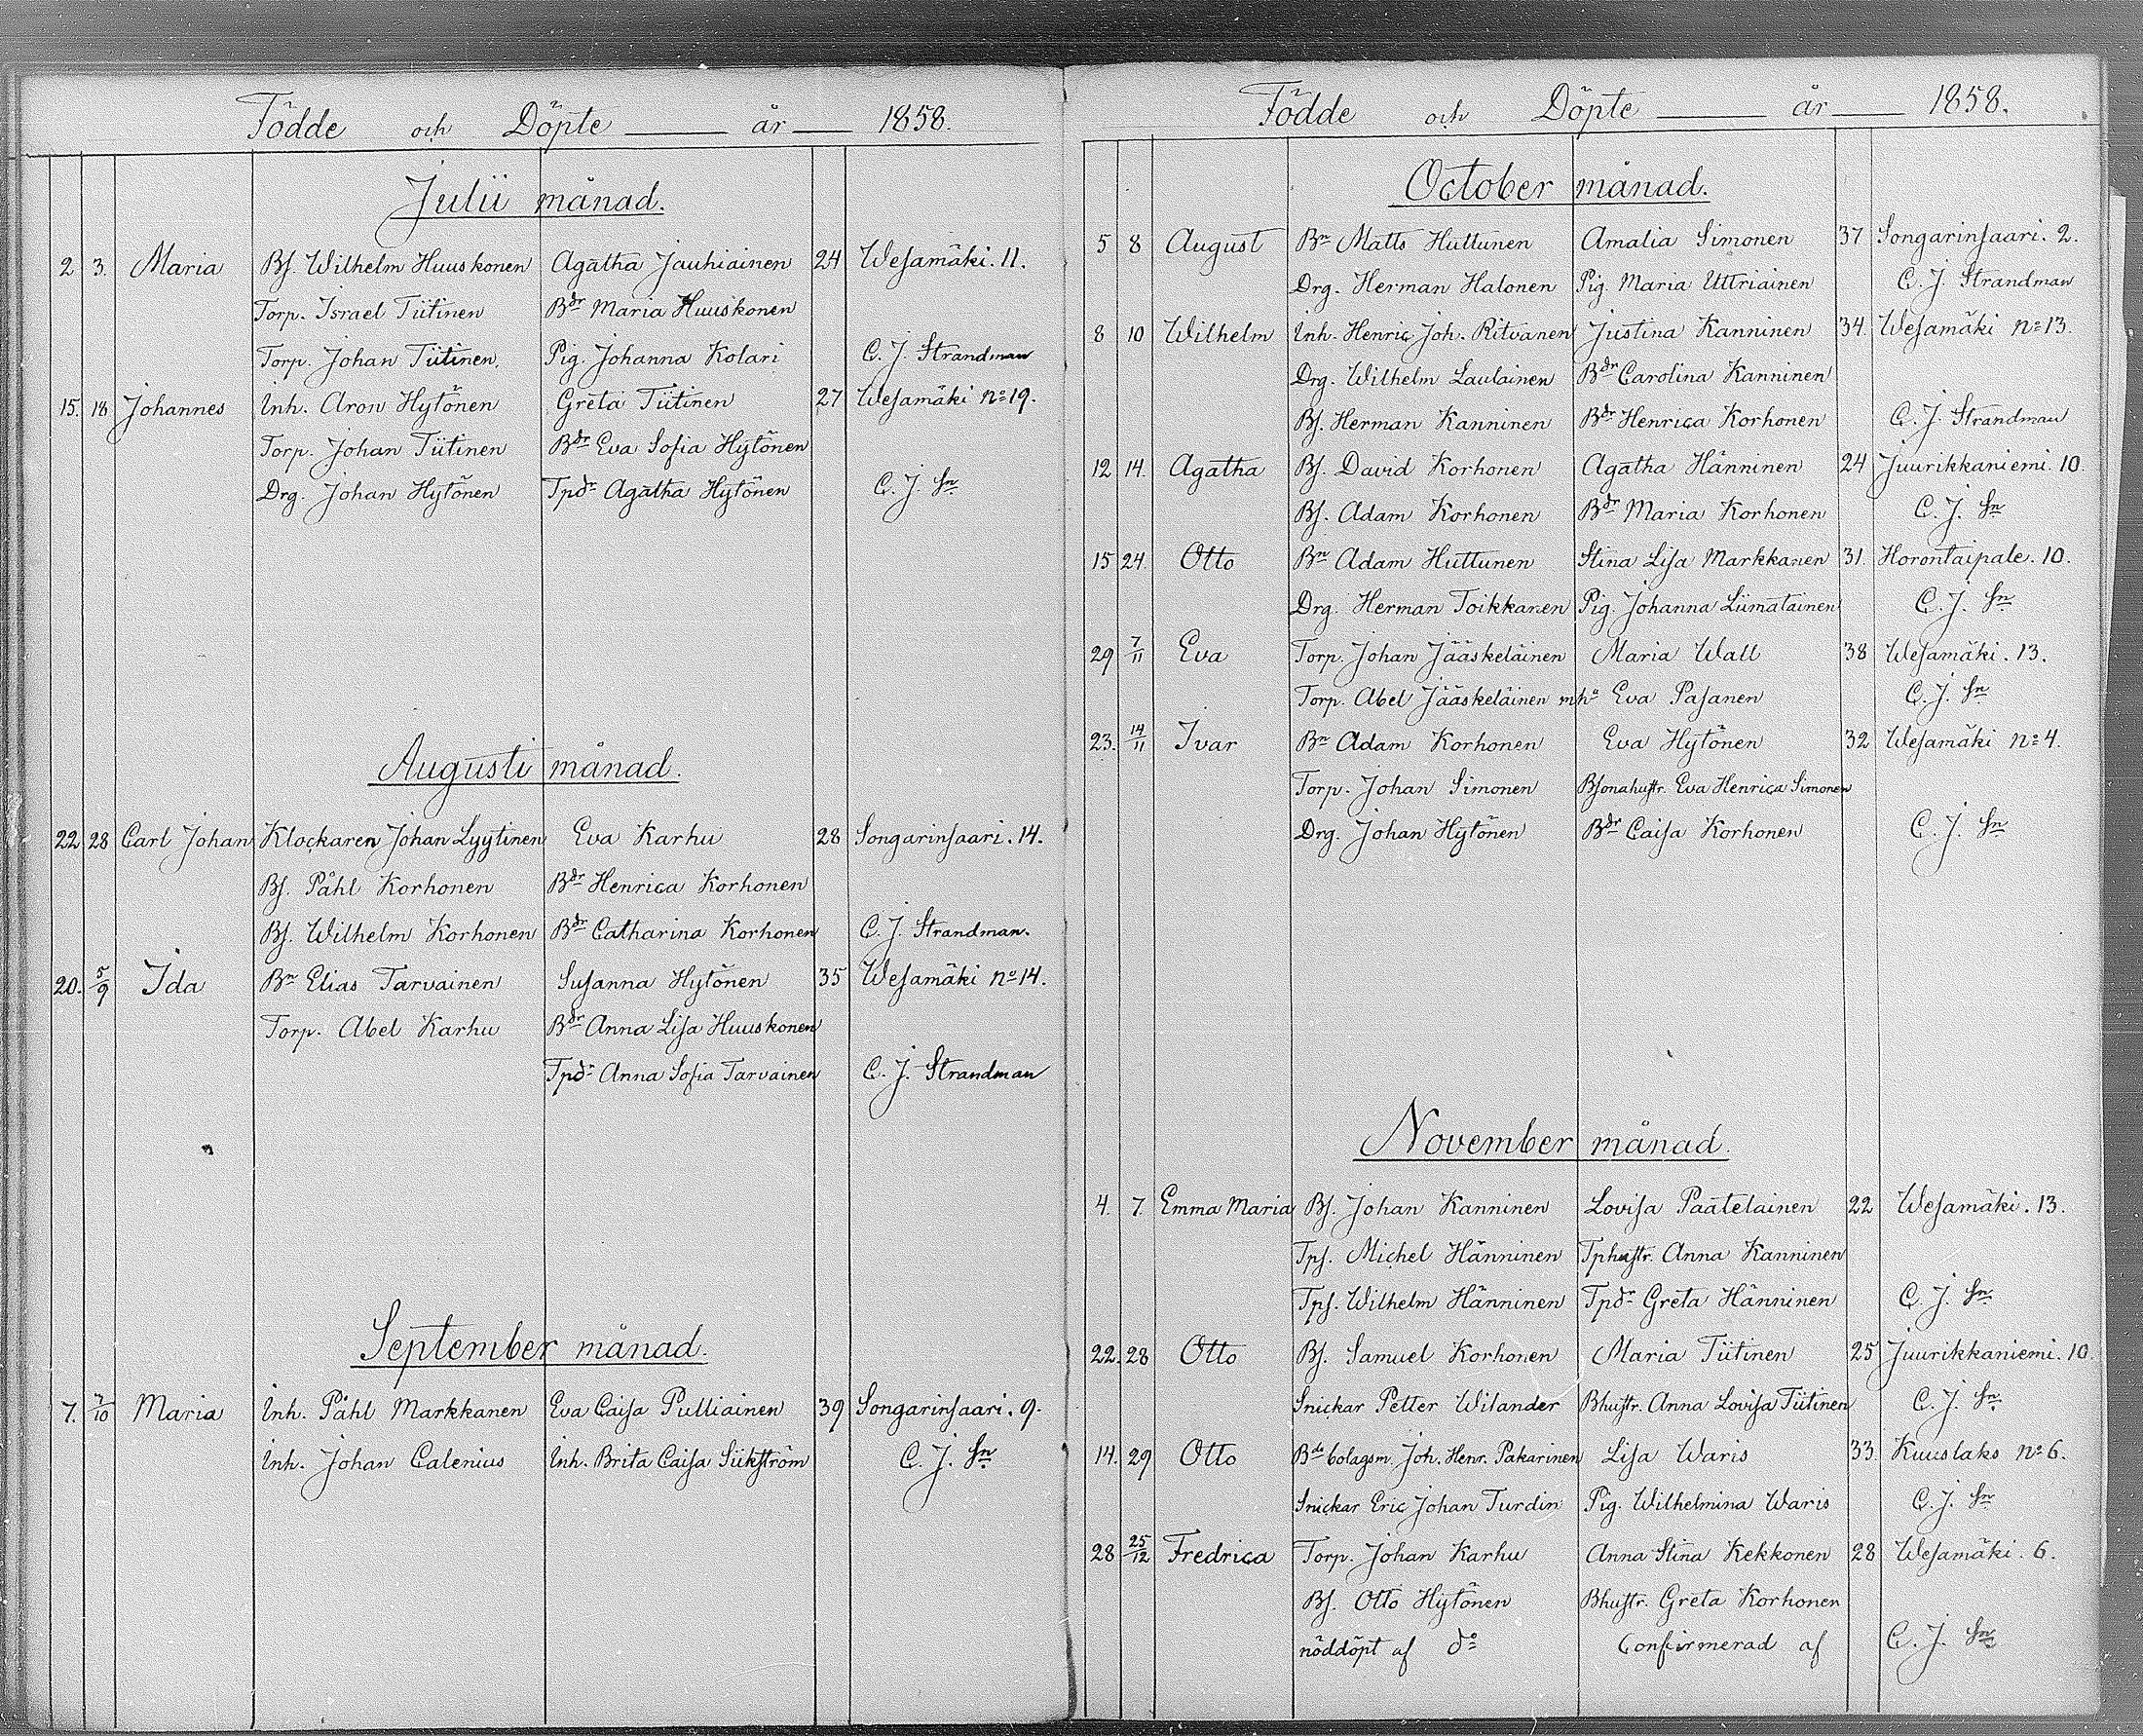 Födde och Döpte år 1858.
Julii månad.
2 3. Maria Bs. Wilhelm Huuskonen Agatha Jauhiainen 24 Wesamäki. 11.
Torp. Israel Tiitinen Bdr Maria Huuskonen
Torp. Johan Tiitinen. Pig. Johanna Kolari C. J. Strandman
15. 18 Johannes Inh. Aron Hytönen Greta Tiitinen 27 Wesamäki No 19.
Torp. Johan Tiitinen Bdr Eva Sofia Hytönen
Drg. Johan Hytönen Tpdr Agatha Hytönen C. J. Sn
Augusti månad.
22 28 Carl Johan Klockaren Johan Lyytinen Eva Karhu 28 Songarinsaari. 14.
Bs. Påhl Korhonen Bdr Henrica Korhonen
Bs. Wilhelm Korhonen Bdr Catharina Korhonen C. J. Strandman.
20. 5/9 Ida Bn Elias Tarvainen Susanna Hytönen 35 Wesamäki No 14.
Torp. Abel Karhu Bdr Anna Lisa Huuskonen
Tpdr Anna Sofia Tarvainen C. J. Strandman
September månad.
7. 7/10 Maria Inh. Påhl Markkanen Eva Caisa Pulliainen 39 Songarinsaari. 9.
Inh. Johan Calenius Inh. Brita Caisa Siikström C. J. Sn
Födde och Döpte år 1858.
October månad.
5 8 August Bn Matts Huttunen Amalia Simonen 37 Songarinsaari. 2.
Drg. Herman Halonen Pig. Maria Uttriainen C. J. Strandman
8 10 Wilhelm Inh. Henric Joh. Ritvanen Justina Kanninen 34. Wesamäki No 13.
Drg. Wilhelm Laulainen Bdr Carolina Kanninen
Bs. Herman Kanninen Bdr Henrica Korhonen C. J. Strandman
12 14. Agatha Bs. David Korhonen Agatha Hänninen 24 Juurikkaniemi. 10.
Bs. Adam Korhonen Bdr Maria Korhonen C. J. Sn
15 24. Otto Bn Adam Huttunen Stina Lisa Markkanen 31. Horontaipale. 10.
Drg. Herman Toikkanen Pig. Johanna Liimatainen C. J. Sn
29 7/11 Eva Torp. Johan Jääskeläinen Maria Wall 38 Wesamäki. 13.
Torp. Abel Jääskeläinen mha Eva Pasanen C. J. Sn
23. 14/11 Ivar Bn Adam Korhonen Eva Hytönen 32 Wesamäki No 4.
Torp. Johan Simonen Bsonahustr. Eva Henrica Simonen
Drg. Johan Hytönen Bdr Caisa Korhonen C. J. Sn
November månad.
4. 7. Emma Maria Bs. Johan Kanninen Lovisa Paatelainen 22 Wesamäki. 13.
Tps. Michel Hänninen Tphustr. Anna Kanninen
Tps. Wilhelm Hänninen Tpdr Greta Hänninen C. J. Sn
22. 28 Otto Bs. Samuel Korhonen Maria Tiitinen 25 Juurikkaniemi. 10.
Snickar Petter Wilander Bhustr. Anna Lovisa Tiitinen C. J. Sn
14. 29 Otto Bde bolagsm. Joh. Henr. Pakarinen Lisa Waris 33. Kuuslaks No 6.
Snickar Eric Johan Turdin Pig. Wilhelmina Waris C. J. Sn
28 25/12 Fredrica Torp. Johan Karhu Anna Stina Kekkonen 28 Wesamäki. 6.
Bs. Otto Hytönen Bhustr. Greta Korhonen
nöddöpt af do Confirmerad af C. J. Sn